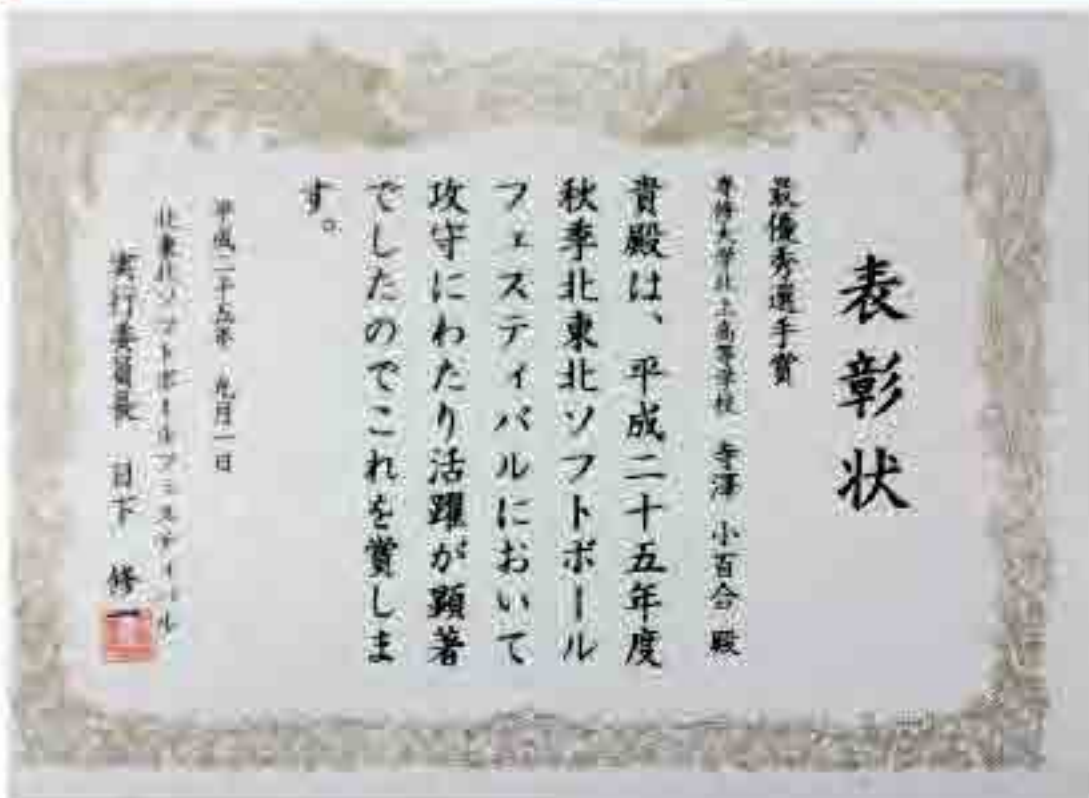 表彰状
最優秀選手賞
専修大学北上高等学校 寺澤 小百合 殿
貴殿は、平成二十五年度
秋季北東北ソフトボール
フェスティバルにおいて
攻守にわたり活躍が顕著
でしたのでこれを賞しま
す。
平成二十五年 九月一日
北東北ソフトボールフェスティバル
実行委員長 日下 修一